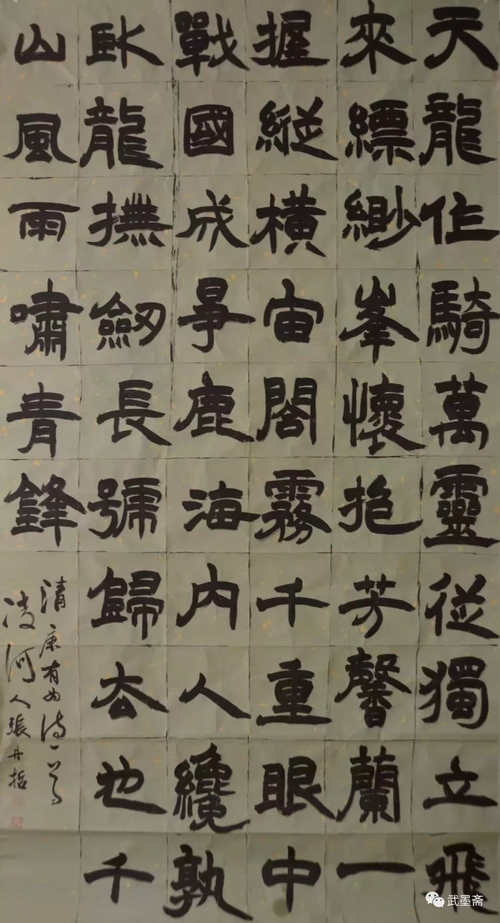 天龍作騎萬靈從獨立飛
來縹緲峯懷抱芳馨蘭一
握縱橫宙閤霧千重眼中
戰國成爭鹿海內人纔孰
臥龍撫劒長號歸去也千
山風雨嘯青鋒
清康有为詩一首
凌河人張丹哲
武墨斋